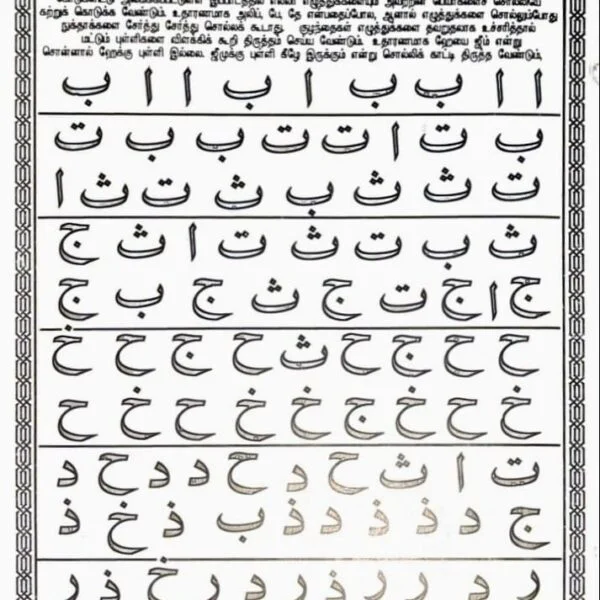 கற்றுக் கொடுக்க வேண்டும். உதாரணமாக அலிப், பே, தே என்பதைப்போல, ஆனால் எழுத்துக்களை சொல்லும்போது
நுக்தாக்களை சேர்த்து சேர்த்து சொல்லக் கூடாது. குழந்தைகள் எழுத்துக்களை தவறுதலாக உச்சரித்தால்
மட்டும் புள்ளிகளை விளக்கிக் கூறி திருத்தம் செய்ய வேண்டும். உதாரணமாக ஹேயை ஜீம் என்று
சொன்னால் ஹேக்கு புள்ளி இல்லை. ஜீமுக்கு புள்ளி கீழே இருக்கும் என்று சொல்லிக் காட்டி திருத்த வேண்டும்,
ا ا ب ب ا ب ا ا ب
ب ت ا ت ت ب ب ب ت
ت ث ث ب ث ت ث ا
ث ب ت ث ت ا ث ج
ج ا ج ت ج ث ج ب ج
ح ح ج ح ث ح ج ح خ
خ ح خ ج خ ح خ ح ح
ت ا ث ح د ح د د ح د
ج د ذ ذ د ذ ب ذ خ ذ
ر د ر ر ذ ر د ر خ ذ ر